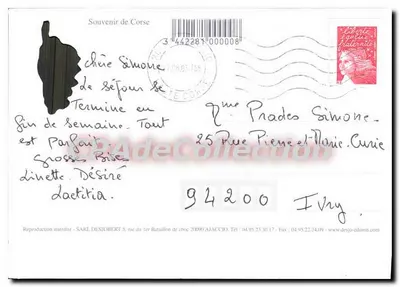 Souvenir de Corse
3 442281 000008
liberté
égalité
fraternité
chère Simone
Le séjour se
Termine en
fin de semaine. Tout
est parfait
grosses Bises
Linette. Désiré
Laetitia.
Mme Prades Simone
25 Rue Pierre et Marie Curie
94200 Ivry
PAdeCollection
Reproduction interdite - SARL DESJOBERT
20000 AJACCIO